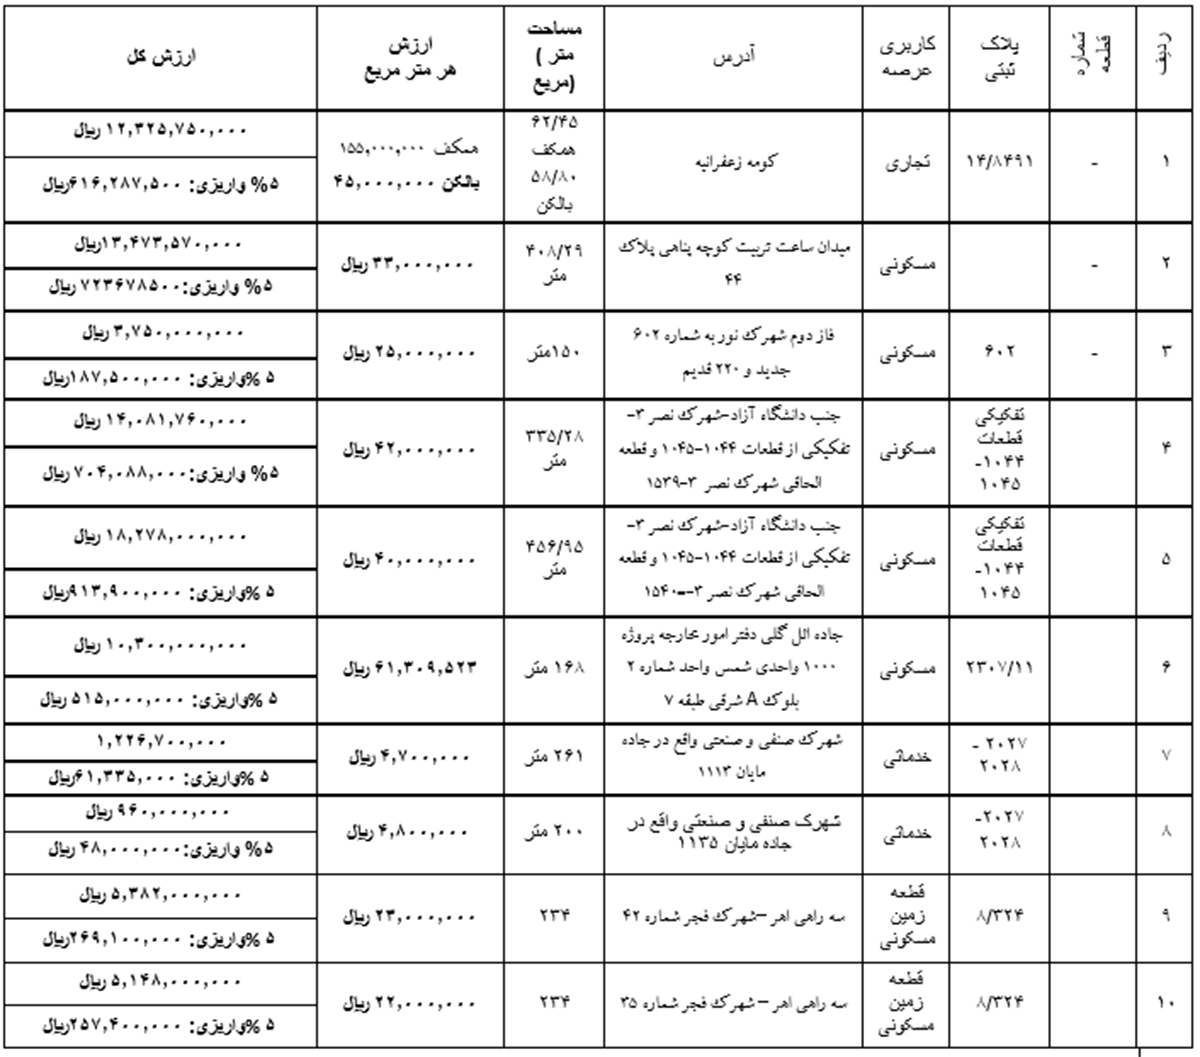 ردیف
شماره قطعه
پلاک ثبتی
کاربری عرصه
آدرس
مساحت
متر )
(مربع
ارزش
هر متر مربع
ارزش کل
۱
-
۱۴/۸۴۹۱
تجاری
کومه زعفرانیه
۶۲/۴۵
همکف
۵۸/۸۰
بالکن
همکف ۱۵۵,۰۰۰,۰۰۰
بالکن ۴۵,۰۰۰,۰۰۰
۱۲,۳۲۵,۷۵۰,۰۰۰ ریال
۵% واریزی: ۶۱۶,۲۸۷,۵۰۰ریال
۲
-
مسکونی
میدان ساعت تربیت کوچه پناهی پلاک
۴۴
۴۰۸/۲۹
متر
۳۳,۰۰۰,۰۰۰ ریال
۱۳,۴۷۳,۵۷۰,۰۰۰ریال
۵% واریزی:۷۲۳۶۷۸۵۰۰ ریال
۳
-
۶۰۲
مسکونی
فاز دوم شهرک نور به شماره ۶۰۲
جدید و ۲۲۰ قدیم
۱۵۰متر
۲۵,۰۰۰,۰۰۰ ریال
۳,۷۵۰,۰۰۰,۰۰۰ ریال
۵ %واریزی: ۱۸۷,۵۰۰,۰۰۰ریال
۴
تفکیکی
قطعات
۱۰۴۴-
۱۰۴۵
مسکونی
جنب دانشگاه آزاد-شهرک نصر ۳-
تفکیکی از قطعات ۱۰۴۴-۱۰۴۵ و قطعه
الحاقی شهرک نصر ۳-۱۵۳۹
۳۳۵/۲۸
متر
۴۲,۰۰۰,۰۰۰ ریال
۱۴,۰۸۱,۷۶۰,۰۰۰ ریال
۵% واریزی:۷۰۴,۰۸۸,۰۰۰ ریال
۵
تفکیکی
قطعات
۱۰۴۴-
۱۰۴۵
مسکونی
جنب دانشگاه آزاد-شهرک نصر ۳-
تفکیکی از قطعات ۱۰۴۴-۱۰۴۵ و قطعه
الحاقی شهرک نصر ۳--۱۵۴۰
۴۵۶/۹۵
متر
۴۰,۰۰۰,۰۰۰ ریال
۱۸,۲۷۸,۰۰۰,۰۰۰ ریال
۵ %واریزی: ۹۱۳,۹۰۰,۰۰۰ریال
۶
۲۳۰۷/۱۱
مسکونی
جاده ائل گلی دفتر امور خارجه پروژه
۱۰۰۰ واحدی شمس واحد شماره ۲
بلوک A شرقی طبقه ۷
۱۶۸ متر
۶۱,۳۰۹,۵۲۳ ریال
۱۰,۳۰۰,۰۰۰,۰۰۰ ریال
۵ %واریزی: ۵۱۵,۰۰۰,۰۰۰ ریال
۷
۲۰۲۷ -
۲۰۲۸
خدماتی
شهرک صنفی و صنعتی واقع در جاده
مایان ۱۱۱۳
۲۶۱ متر
۴,۷۰۰,۰۰۰ ریال
۱,۲۲۶,۷۰۰,۰۰۰
۵ %واریزی: ۶۱,۳۳۵,۰۰۰ریال
۸
۲۰۲۷-
۲۰۲۸
خدماتی
شهرک صنفی و صنعتی واقع در
جاده مایان ۱۱۳۵
۲۰۰ متر
۴,۸۰۰,۰۰۰ ریال
۹۶۰,۰۰۰,۰۰۰ ریال
۵% واریزی:۴۸,۰۰۰,۰۰۰ ریال
۹
۸/۳۲۴
قطعه
زمین
مسکونی
سه راهی اهر –شهرک فجر شماره ۴۲
۲۳۴
۲۳,۰۰۰,۰۰۰ ریال
۵,۳۸۲,۰۰۰,۰۰۰ ریال
۵ %واریزی: ۲۶۹,۱۰۰,۰۰۰ریال
۱۰
۸/۳۲۴
قطعه
زمین
مسکونی
سه راهی اهر – شهرک فجر شماره ۳۵
۲۳۴
۲۲,۰۰۰,۰۰۰ ریال
۵,۱۴۸,۰۰۰,۰۰۰ ریال
۵ %واریزی: ۲۵۷,۴۰۰,۰۰۰ریال